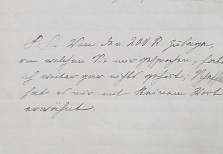 P. S. Von den 200 R Zulage,
von welchen Sie mir gesprochen, habe
ich weiter gar nichts gehört,
hat er mir mit keinem Wort
erwähnt.